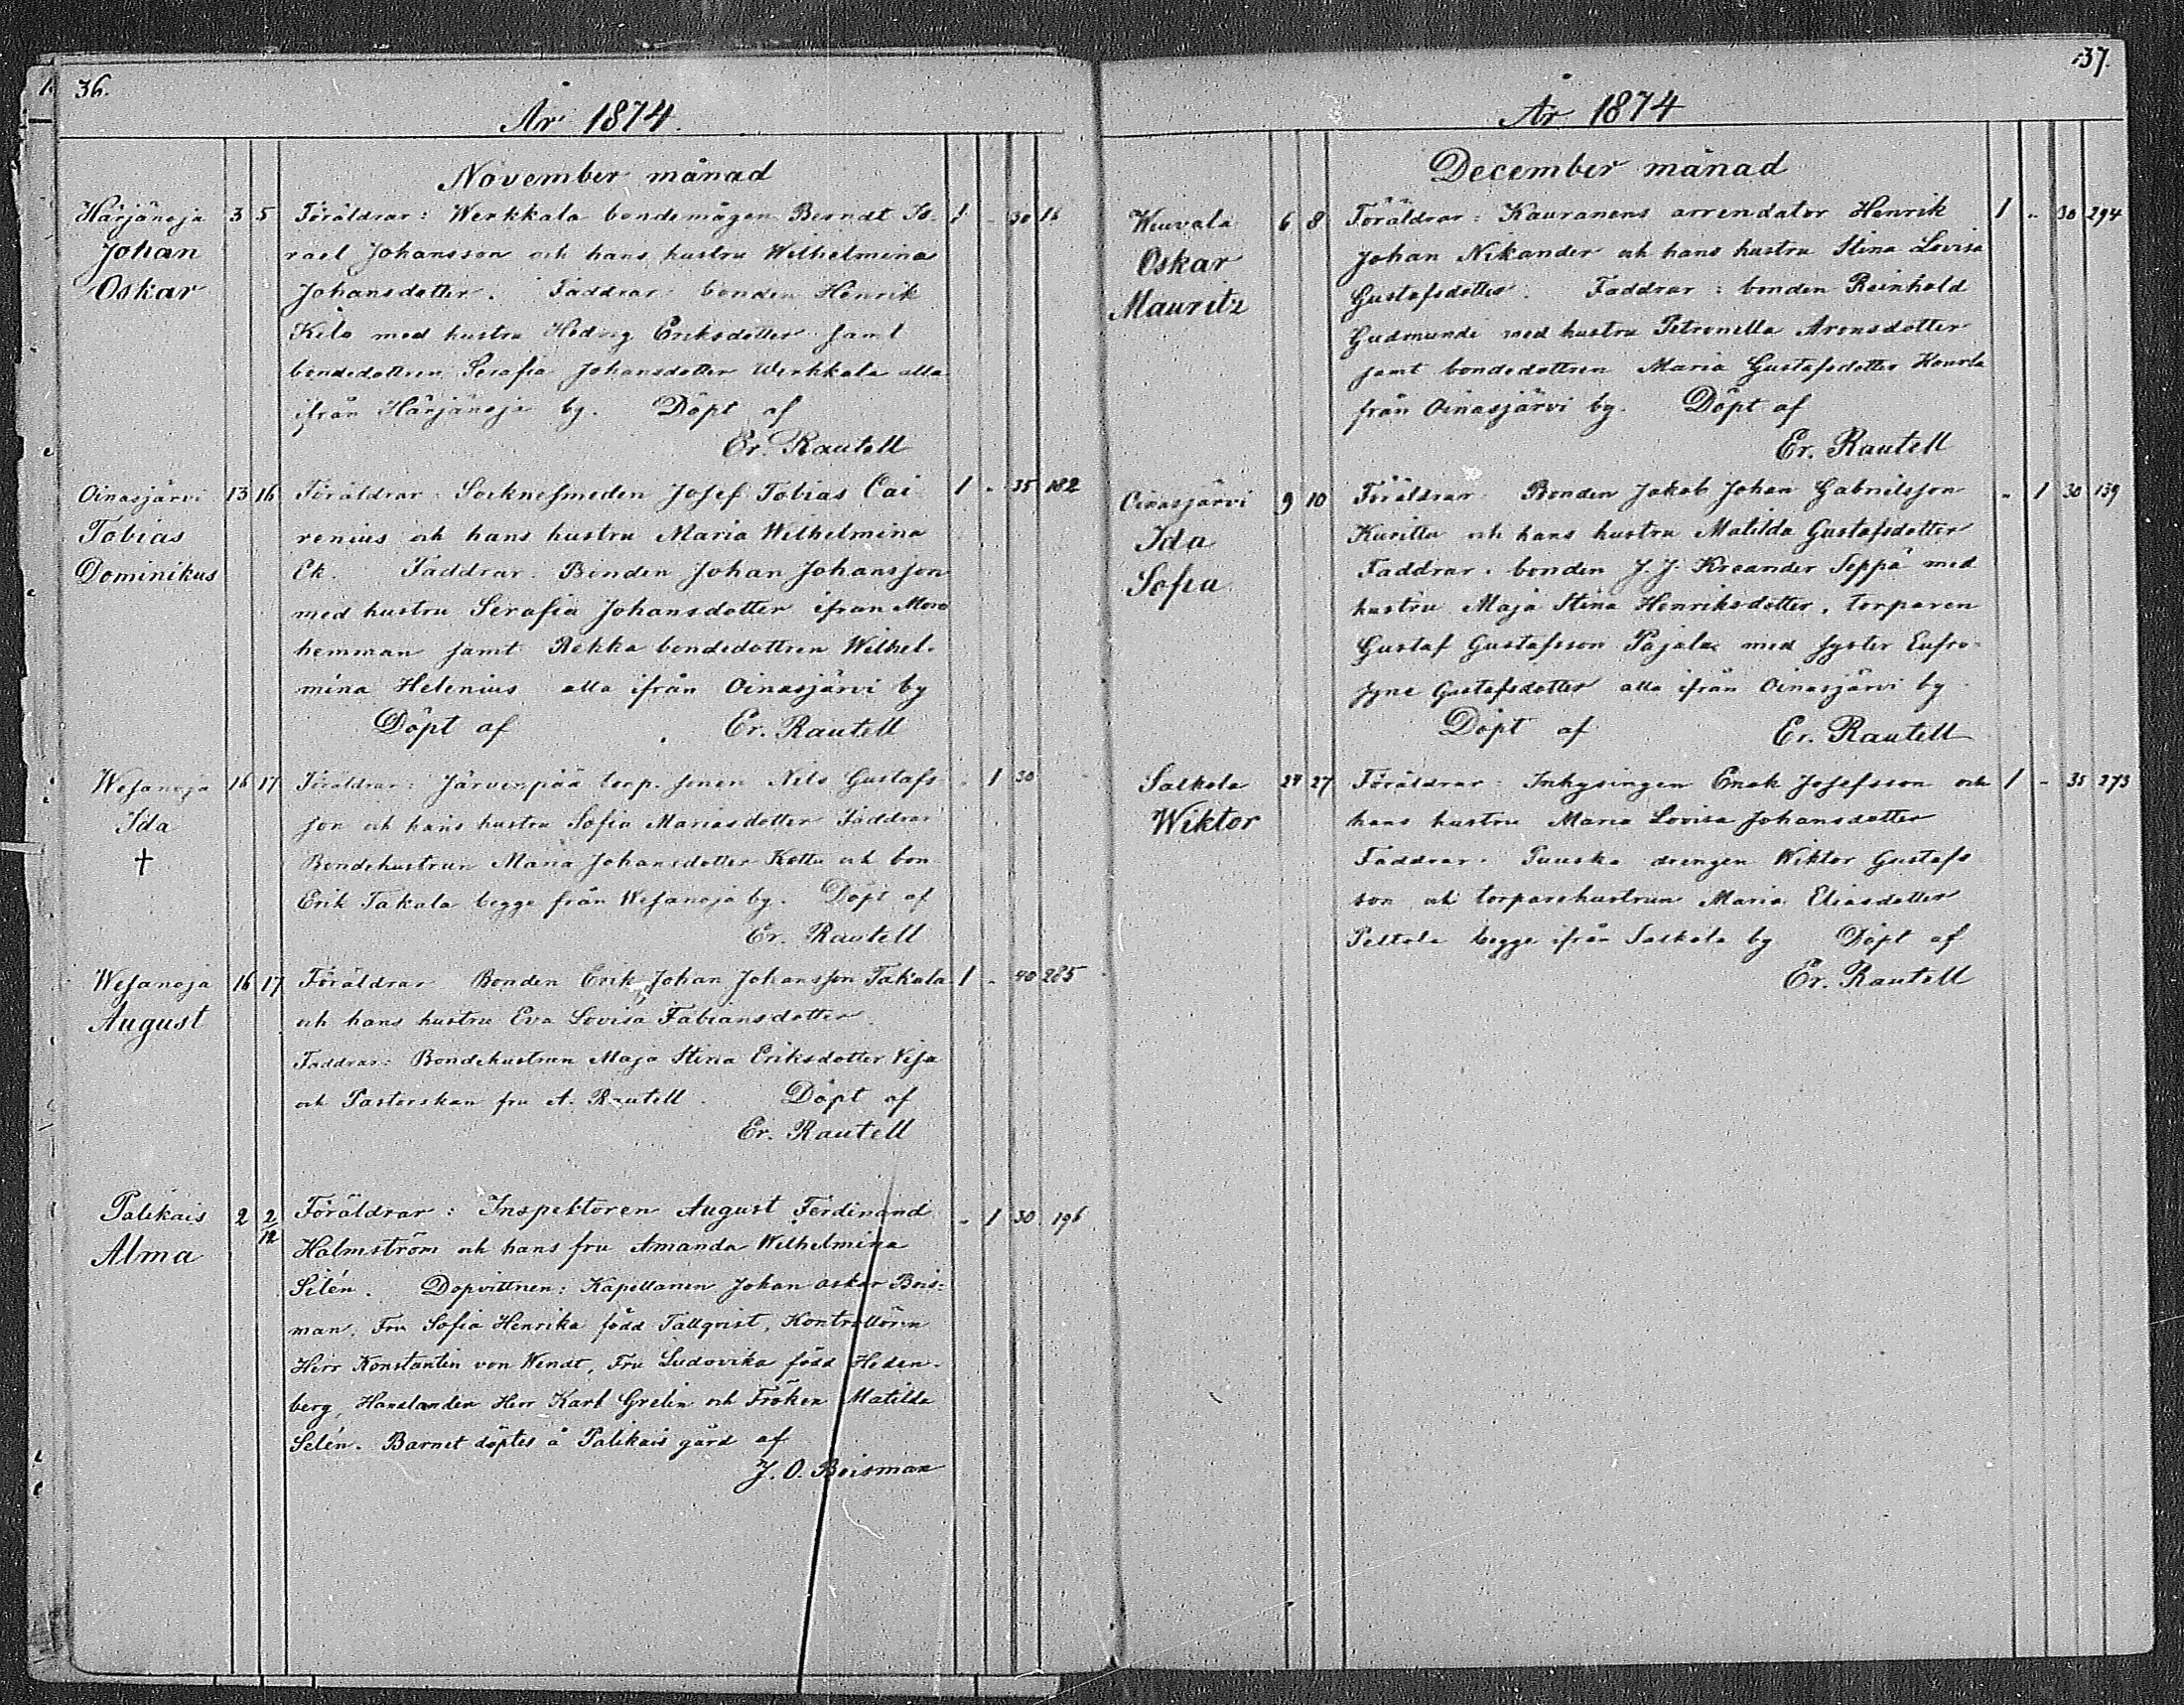 36.
År 1874.
November månad
Härjänoja 3 5 Föräldrar: Werkkala bondemågen Berndt Is-
Johan rael Johansson och hans hustru Wilhelmina
Oskar Johansdotter. Faddrar bonden Henrik
Kilo med hustru Hedvig Eriksdotter samt
bondedottren Serafia Johansdotter Werkkala alla
ifrån Härjänoja by. Döpt af
Er. Rautell
1 - 30 16
Oinasjärvi 13 16 Föräldrar: Socknesmeden Josef Tobias Cai-
Tobias renius och hans hustru Maria Wilhelmina
Dominikus Ek. Faddrar: Bonden Johan Johansson
med hustru Serafia Johansdotter ifrån Moro
hemman samt Rekka bondedottren Wilhel-
mina Helenius alla ifrån Oinasjärvi by
Döpt af Er. Rautell
1 - 35 182
Wesanoja 16 17 Föräldrar: Järvenpää torp. sonen Nils Gustafs-
Ida son och hans hustru Sofia Mariasdotter Faddrar
† Bondehustrun Maria Johansdotter Kottu och bon
Erik Takala begge från Wesanoja by. Döpt af
Er. Rautell
- 1 30
Wesanoja 16 17 Föräldrar Bonden Erik Johan Johansson Takala
August och hans hustru Eva Lovisa Fabiansdotter.
Faddrar: Bondehustrun Maja Stina Eriksdotter Vesa
och Pastorskan fru A. Rautell. Döpt af
Er. Rautell
1 - 40 285
Palikais 2 2/12 Föräldrar: Inspektoren August Ferdinand
Alma Holmström och hans fru Amanda Wilhelmina
Silén. Dopvittnen: Kapellanen Johan Oskar Bois-
man, Fru Sofia Henrika född Tallqvist, Kontrollören
Herr Konstantin von Wendt, Fru Ludovika född Heden-
berg, Handlanden Herr Karl Grelin och Fröken Matilda
Selén. Barnet döptes å Palikais gård af
J. O. Boisman
- 1 30 196
37.
År 1874
December månad
Wuvala 6 8 Föräldrar: Kauranens arrendator Henrik
Oskar Johan Nikander och hans hustru Stina Lovisa
Mauritz Gustafsdotter. Faddrar: bonden Reinhold
Gudmundi med hustru Petronella Aronsdotter
samt bondedottren Maria Gustafsdotter
från Oinasjärvi by. Döpt af
Er. Rautell
1 - 30 294
Oinasjärvi 9 10 Föräldrar Bonden Jakob Johan Gabrielsson
Ida Kuritta och hans hustru Matilda Gustafsdotter
Sofia Faddrar. bonden J. J. Kreander Seppä med
hustru Maja Stina Henriksdotter, torparen
Gustaf Gustafsson Pajala med syster Eufro-
syne Gustafsdotter alla ifrån Oinasjärvi by
Döpt af Er. Rautell
- 1 30 139
Salkola 24 27 Föräldrar: Inhysingen Enok Josefsson och
Wiktor hans hustru Maria Lovisa Johansdotter
Faddrar. drengen Wiktor Gustafs
son och torparehustrun Maria Eliasdotter
Peltola begge ifrån Salkola by Döpt af
Er. Rautell
1 - 35 273